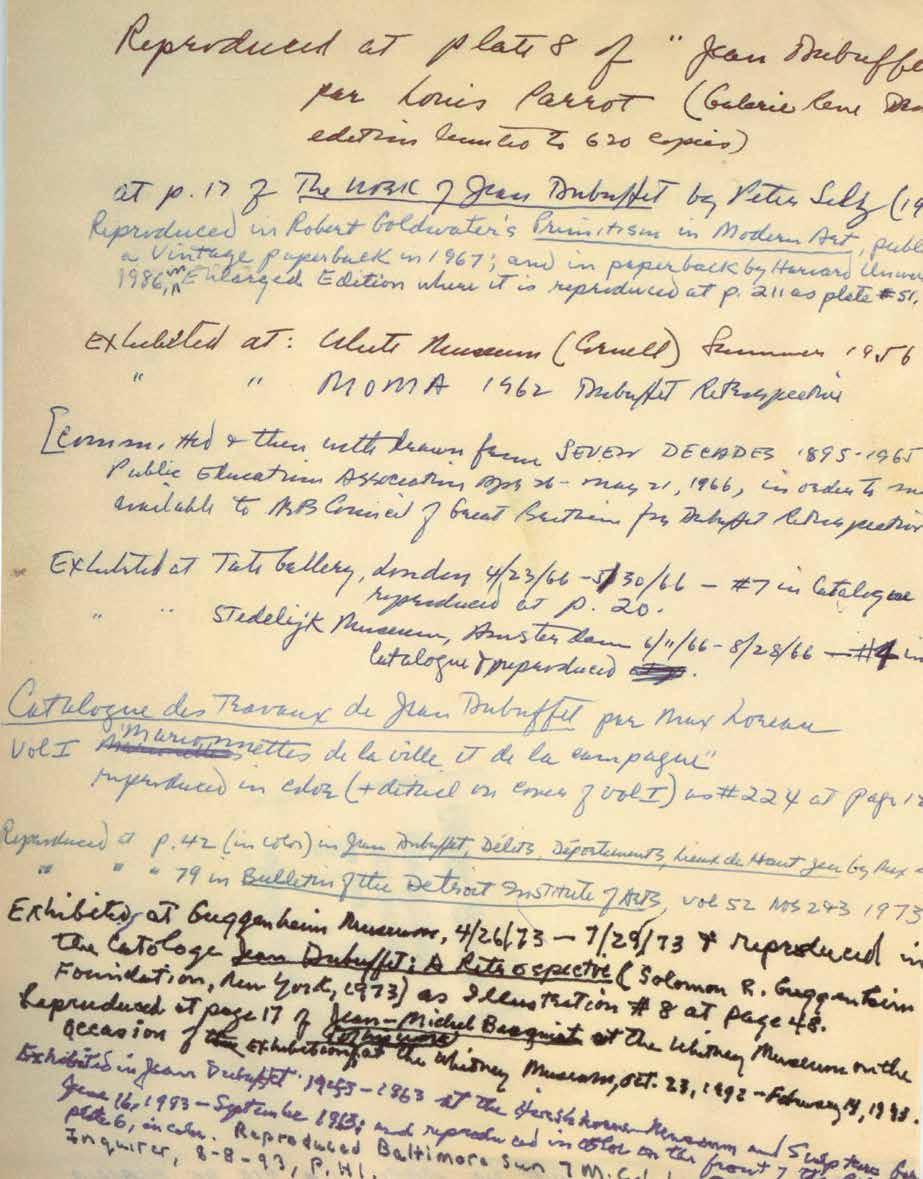 Reproduced at plate 8 of "Jean Dubuffe
par Louis Parrot (Galerie Rene
edition limited to 620 copies)
at p. 17 of The Work of Jean Dubuffet by Peter Selz (19
Reproduced in Robert Goldwater's Primitism in Modern Art, publ
a Vintage paperback in 1967; and in paperback by Harvard Univer
1986, in Enlarged Edition where it is reproduced at p. 211 as plate #51,
Exhibited at: White Museum (Cornell) Summer 1956
" " MOMA 1962 Dubuffet Retrospective
[Committed & then withdrawn from SEVEN DECADES 1895-1965
Public Education Association Apr 26 - May 21, 1966, in order to
available to Council of Great Britain for Dubuffet Retrospective
Exhibited at Tate Gallery, London 4/23/66 - 5/30/66 - #7 in Catalogue
reproduced at p. 20.
" " Stedelijk Museum, Amsterdam 6/11/66 - 8/28/66 - #4 in
Catalogue & reproduced
Catalogue des Travaux de Jean Dubuffet par Max Loreau
Vol I "Marionnettes de la ville et de la campagne"
reproduced in color (+ detail on cover of vol I) as #224 at page
Reproduced at p. 42 (in color) in Jean Dubuffet, Délits, Déportements, Lieux de Haut Jeu by Max
" " " 79 in Bulletin of the Detroit Institute of Arts, vol 52 Nos 2&3 1973
Exhibited at Guggenheim Museum, 4/26/73 - 7/29/73 & reproduced in
the Catologe Jean Dubuffet: A Retrospective (Solomon R. Guggenheim
Foundation, New York, 1973) as Illustration #8 at page 48.
Reproduced at page 17 of Jean-Michel Basquiat at the Whitney Museum on the
occasion of the exhibition at the Whitney Museum, Oct. 23, 1992 - February 14, 1993.
Exhibited in Jean Dubuffet 1943-1963 at the Hirshhorn Museum and Sculpture
June 16, 1993 - September 1993; and reproduced in color on the front
plate 6, in color. Reproduced Baltimore Sun
Inquirer, 8-8-93, P. H1.